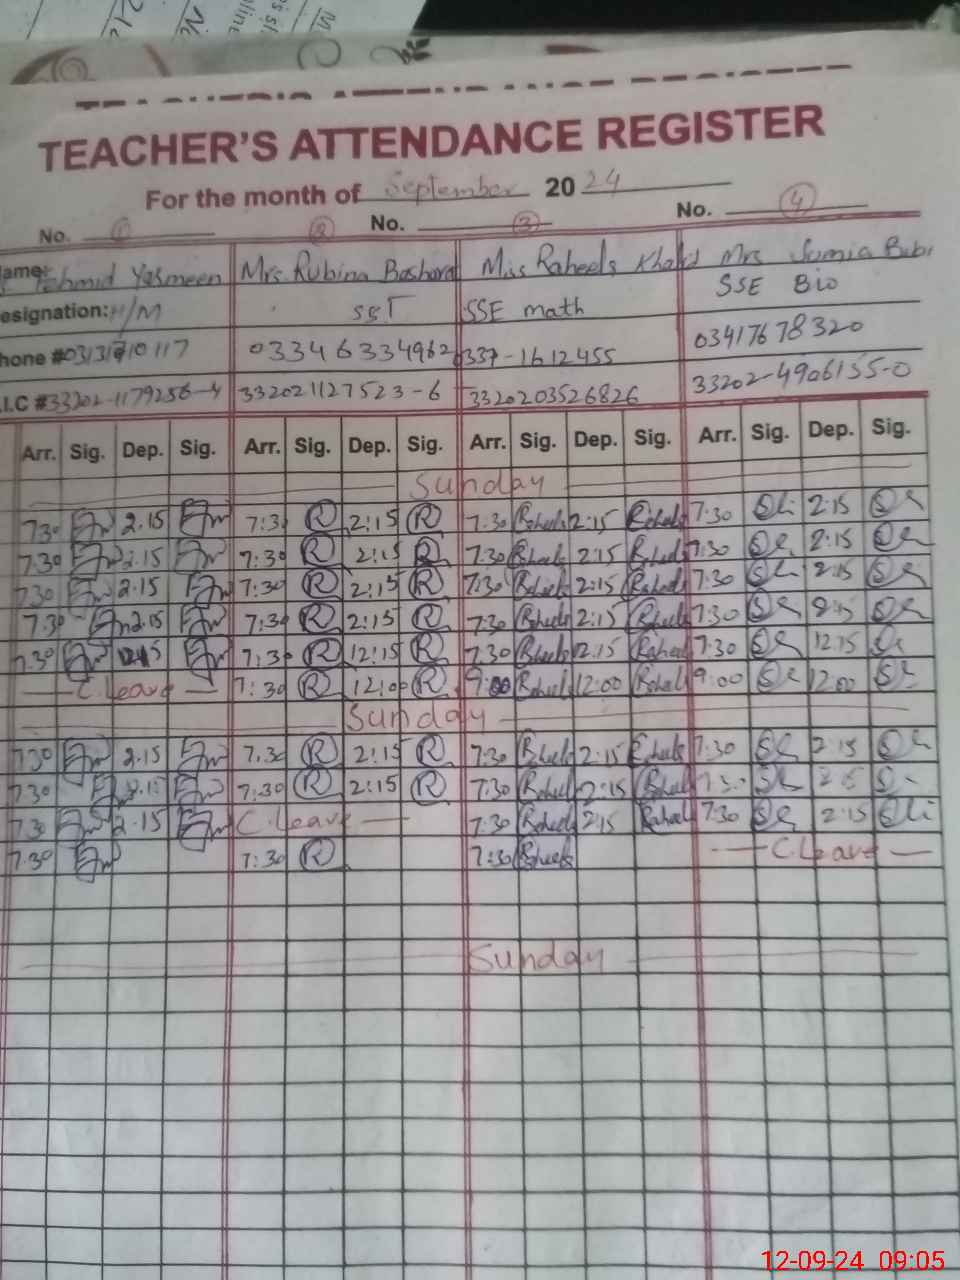 TEACHER'S ATTENDANCE REGISTER
For the month of September 2024
No. 1 2 No. 3 No. 4
ame: Yasmeen Mrs. Rubina Bashara Miss Raheela Khalid Mrs Sumia Bibi
esignation: H/M SST SSE math SSE Bio
hone # 03346334962 0337-1612455 03417678320
.I.C #33202-1179256-4 332021127523-6 3320203526826 33202-4906155-0
Arr. Sig. Dep. Sig. Arr. Sig. Dep. Sig. Arr. Sig. Dep. Sig. Arr. Sig. Dep. Sig.
Sunday
7:30 2:15 7:30 R 2:15 R 7:30 Raheela 2:15 Raheela 7:30 2:15
7:30 2:15 7:30 R 2:15 R 7:30 Raheela 2:15 Raheela 7:30 2:15
7:30 2:15 7:30 R 2:15 R 7:30 Raheela 2:15 Raheela 7:30 2:15
7:30 2:15 7:30 R 2:15 R 7:30 Raheela 2:15 Raheela 7:30 2:15
7:30 12:15 7:30 R 12:15 R 7:30 Raheela 12:15 Raheela 7:30 12:15
C.Leave 7:30 R 12:00 R 9:00 Raheela 12:00 Raheela 9:00 12:00
Sunday
7:30 2:15 7:30 R 2:15 R 7:30 Raheela 2:15 Raheela 7:30 2:15
7:30 2:15 7:30 R 2:15 R 7:30 Raheela 2:15 Raheela 7:30 2:15
7:30 2:15 C.Leave 7:30 Raheela 2:15 Raheela 7:30 2:15
7:30 7:30 R 7:30 Raheela C.Leave
Sunday
12-09-24 09:05